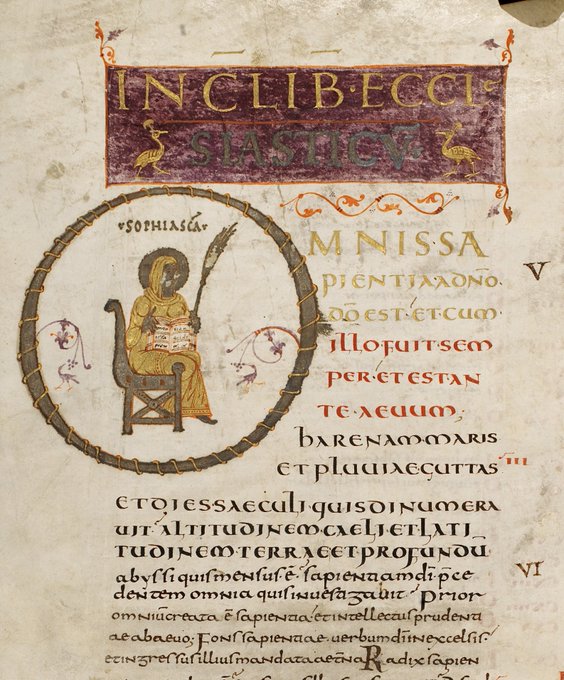 INC LIB· ECCLE
SIASTICV̅·
·SOPHIA SC̅A·
OMNIS·SA
PIENTIA A DN̅O·
DŌ EST· ET CUM·
ILLO FUIT· SEM
PER· ET EST AN
TE· AEVUM;
V
hARENAM MARIS
ET PLUVIAE GUTTAS
III
ET DIES SAECULI· QUIS DINUMERA
UIT· ALTITUDINEM CAELI· ET LATI
TUDINEM TERRAE ET PROFUNDŪ
abyssi quis mensus· ē· sapientiam dī p̄ce
dentem omnia quis inuestigabit· Prior
VI
omniū creata ē sapientia· et intellectus prudenti
ae ab aevo; Fons sapientiae· verbum dī in excelsis·
et ingressus illius mandata aet̄na Radix sapien